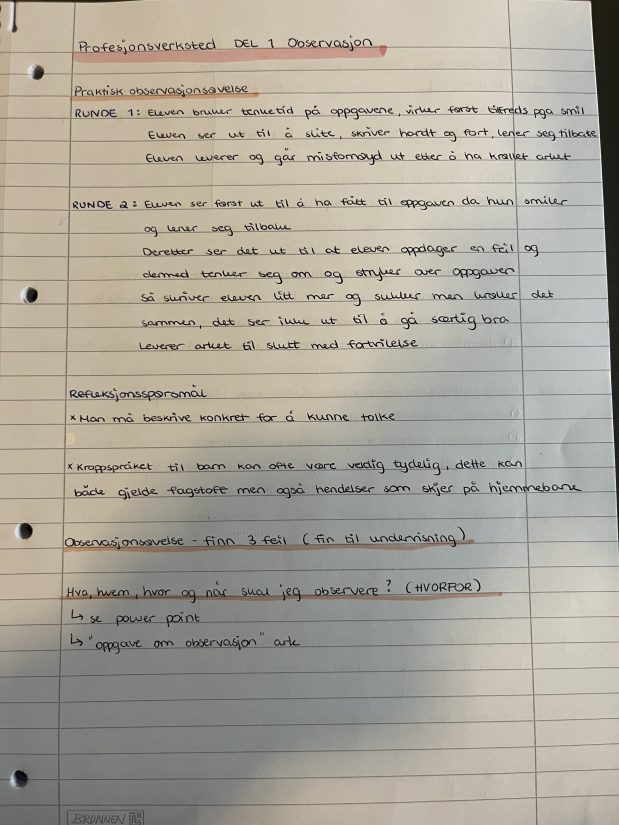 Profesjonsverksted DEL 1 Observasjon
Praktisk observasjonsøvelse
RUNDE 1: Eleven bruker tenketid på oppgavene, virker først tilfreds pga smil
Eleven ser ut til å slite, skriver hardt og fort, lener seg tilbake
Eleven leverer og går misfornøyd ut etter å ha krøllet arket
RUNDE 2: Eleven ser først ut til å ha fått til oppgaven da hun smiler
og lener seg tilbake
Deretter ser det ut til at eleven oppdager en feil og
dermed tenker seg om og stryker over oppgaven
Så skriver eleven litt mer og sukker men krøller det
sammen, det ser ikke ut til å gå særlig bra
Leverer arket til slutt med fortvilelse
Refleksjonsspørsmål
* Man må beskrive konkret for å kunne tolke
* Kroppspråket til barn kan ofte være veldig tydelig, dette kan
både gjelde fagstoff men også hendelser som skjer på hjemmebane
Observasjonsøvelse - finn 3 feil (fin til undervisning)
Hva, hvem, hvor og når skal jeg observere? (HVORFOR)
↳ se power point
↳ "oppgave om observasjon" ark
BRUNNEN